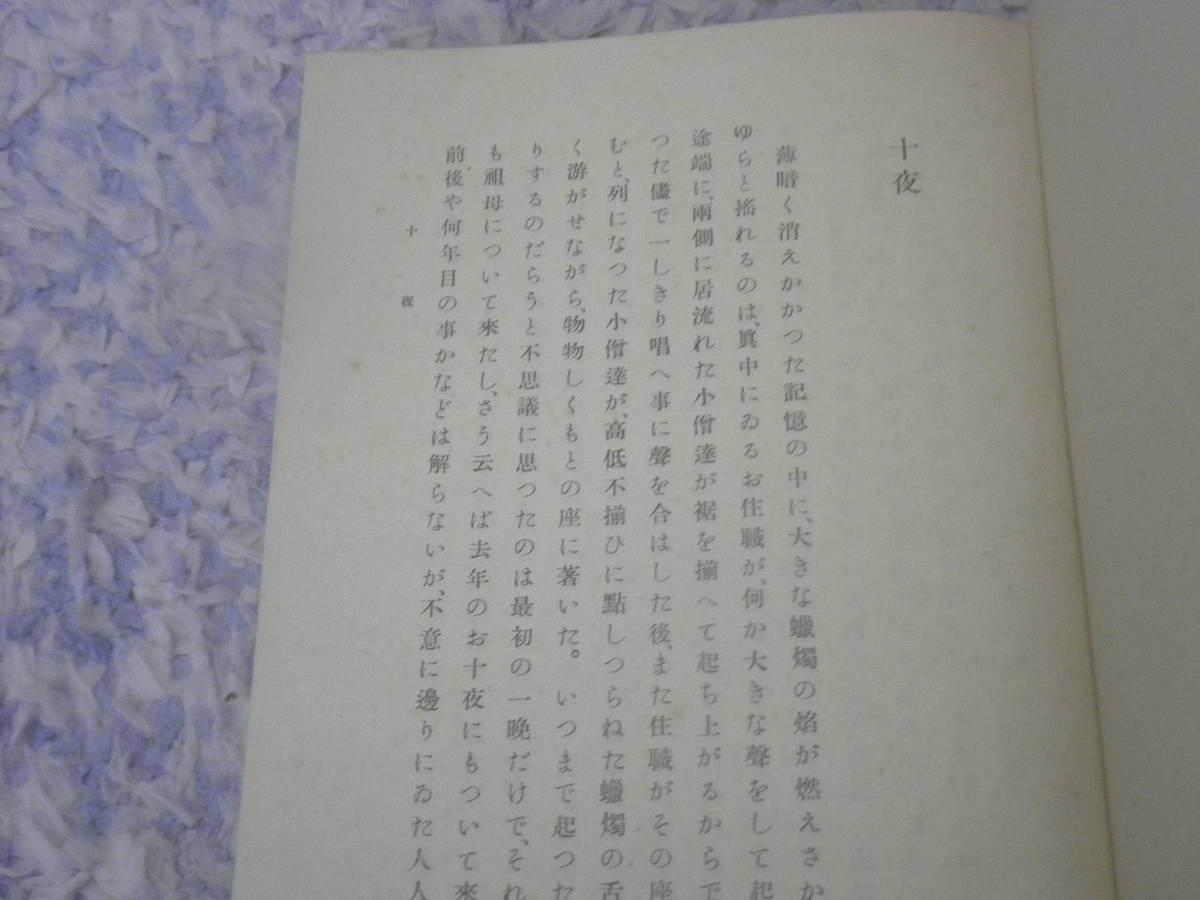 十夜
薄暗く消えかかつた記憶の中に、大きな蠟燭の焰が燃えさか
ゆらと搖れるのは、眞中にゐるお住職が、何か大きな聲をして起
途端に、兩側に居流れた小僧達が裾を揃へて起ち上がるからで
つた儘で一しきり唱へ事に聲を合はした後、また住職がその座
むと、列になつた小僧達が、高低不揃ひに點しつらねた蠟燭の舌
く游がせながら、物物しくもとの座に著いた。いつまで起つた
りするのだらうと不思議に思つたのは最初の一晩だけで、それ
も祖母について來たし、さう云へば去年のお十夜にもついて來
前後や何年目の事かなどは解らないが、不意に邊りにゐた人人
十夜